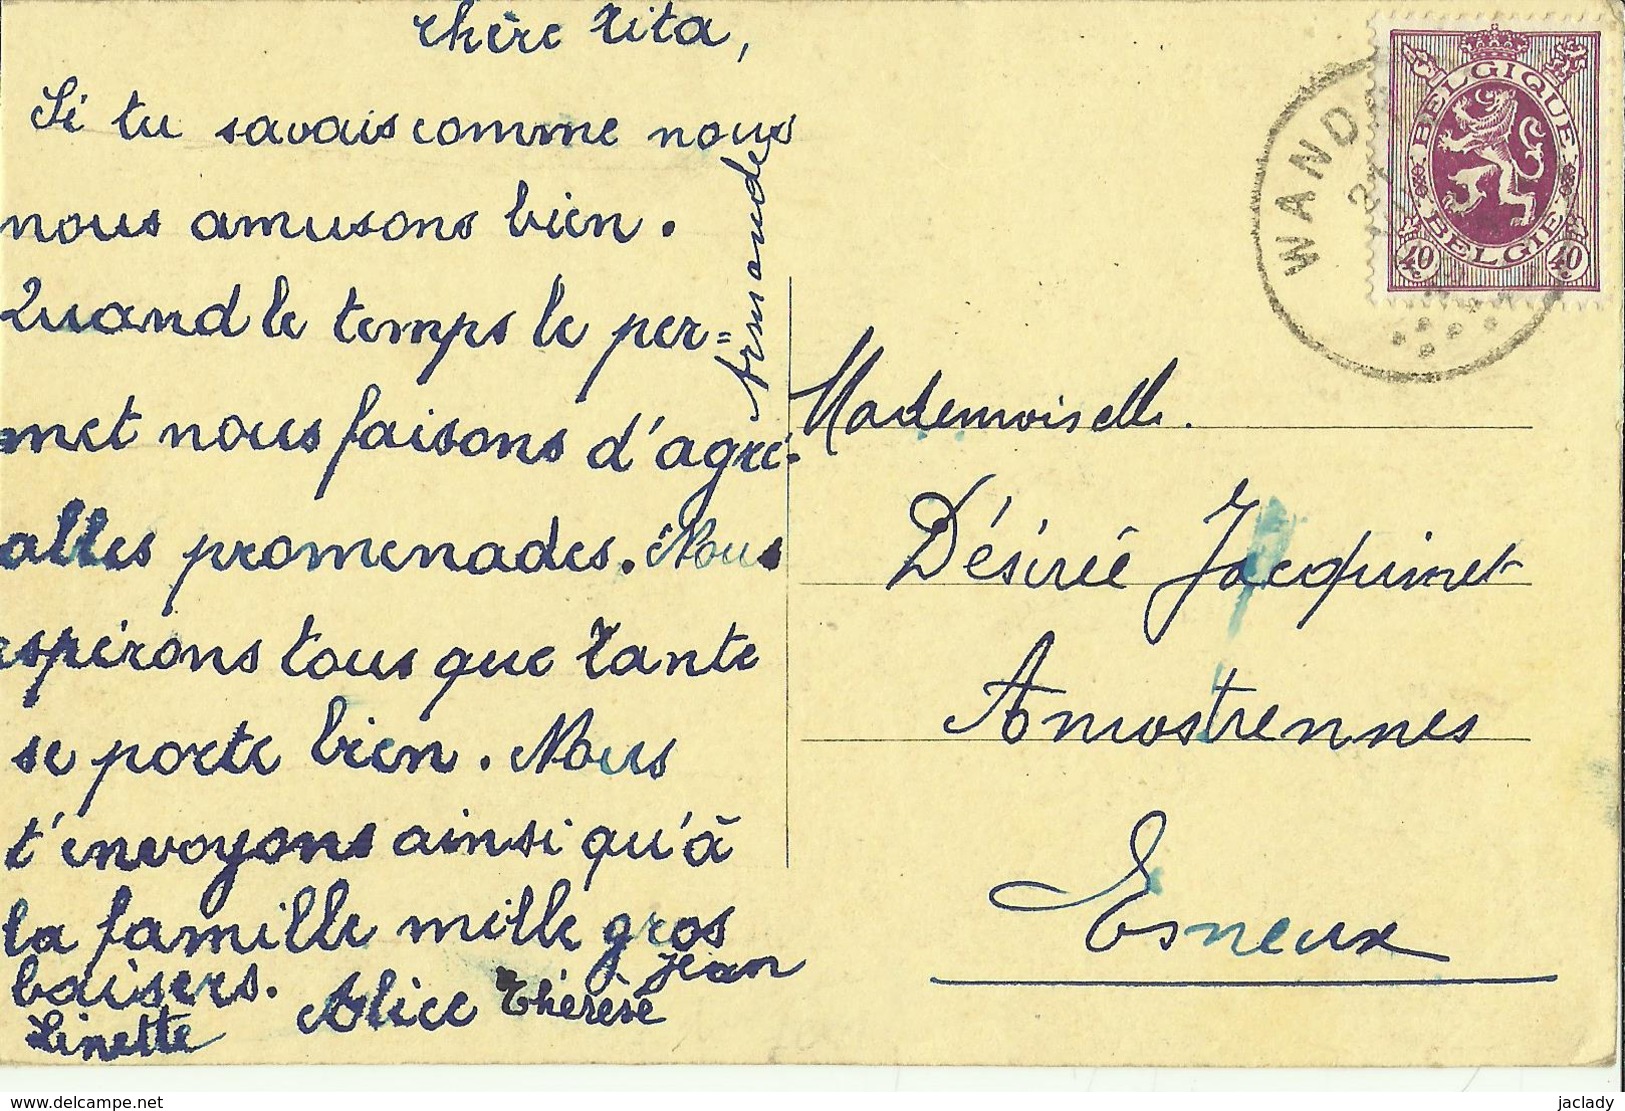 Chère Rita,
Si tu savais comme nous
nous amusons bien.
Quand le temps le per=
met nous faisons d'agré-
ables promenades. Nous
espérons tous que tante
se porte bien. Nous
t'envoyons ainsi qu'à
la famille mille gros
baisers.
Linette Alice Thérèse Jean
Armande
BELGIQUE
BELGIE
40c 40c
WAND
Mademoiselle.
Désirée Jacquinet
Amostrennes
Esneux
delcampe.net
jaclady